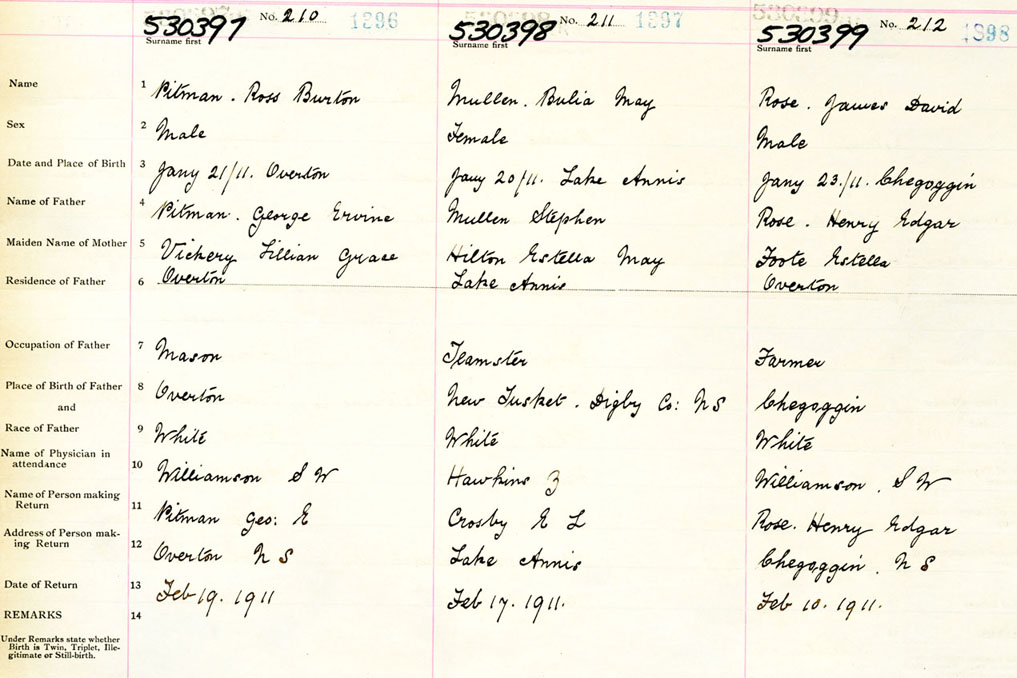 530397 No. 210 1296
Surname first
530398 No. 211 1297
Surname first
530399 No. 212 1298
Surname first
Name 1 Pitman. Ross Burton Mullen. Bulia May Rose. James David
Sex 2 Male Female Male
Date and Place of Birth 3 Jany 21/11. Overton Jany 20/11. Lake Annis Jany 23./11. Chegoggin
Name of Father 4 Pitman. George Ervine Mullen Stephen Rose. Henry Edgar
Maiden Name of Mother 5 Vickery Lillian Grace Hilton Estella May Foote Estella
Residence of Father 6 Overton Lake Annis Overton
Occupation of Father 7 Mason Teamster Farmer
Place of Birth of Father 8 Overton New Tusket. Digby Co: NS Chegoggin
and
Race of Father 9 White White White
Name of Physician in
attendance 10 Williamson S W Hawkins Z Williamson. S W
Name of Person making
Return 11 Pitman Geo: E Crosby E L Rose. Henry Edgar
Address of Person mak-
ing Return 12 Overton N S Lake Annis Chegoggin. N S
Date of Return 13 Feb 19. 1911 Feb 17. 1911. Feb 10. 1911.
REMARKS 14
Under Remarks state whether
Birth is Twin, Triplet, Ille-
gitimate or Still-birth.